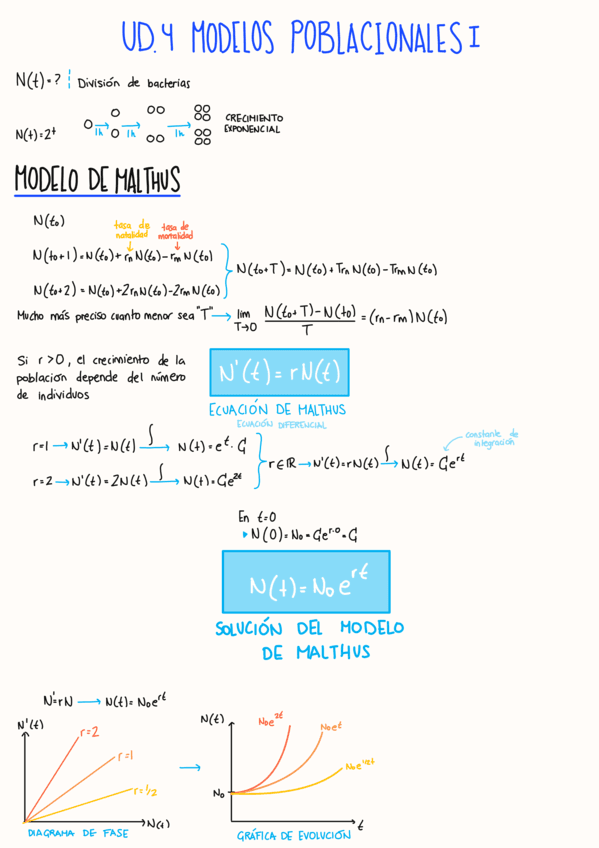 UD.4 MODELOS POBLACIONALES I
N(t)=? División de bacterias
N(t)=2^t 1h 1h 1h CRECIMIENTO EXPONENCIAL
MODELO DE MALTHUS
N(t₀)
tasa de natalidad tasa de mortalidad
N(t₀+1)=N(t₀)+rₙN(t₀)-rₘN(t₀)
N(t₀+2)=N(t₀)+2rₙN(t₀)-2rₘN(t₀)
N(t₀+T)=N(t₀)+TrₙN(t₀)-TrₘN(t₀)
Mucho más preciso cuanto menor sea "T" → lim T→0 (N(t₀+T)-N(t₀))/T = (rₙ-rₘ)N(t₀)
Si r>0, el crecimiento de la
población depende del número
de individuos
N'(t)=rN(t)
ECUACIÓN DE MALTHUS
ECUACIÓN DIFERENCIAL
r=1 → N'(t)=N(t) ∫→ N(t)=e^t·C
r=2 → N'(t)=2N(t) ∫→ N(t)=Ce^2t
r∈ℝ → N'(t)=rN(t) ∫→ N(t)=Ce^rt
constante de
integración
En t=0
N(0)=N₀=Ce^r·0=C
N(t)=N₀e^rt
SOLUCIÓN DEL MODELO
DE MALTHUS
N'=rN → N(t)=N₀e^rt
N'(t)
r=2
r=1
r=1/2
N(t)
DIAGRAMA DE FASE
N(t)
N₀e^2t
N₀e^t
N₀e^1/2t
N₀
t
GRÁFICA DE EVOLUCIÓN